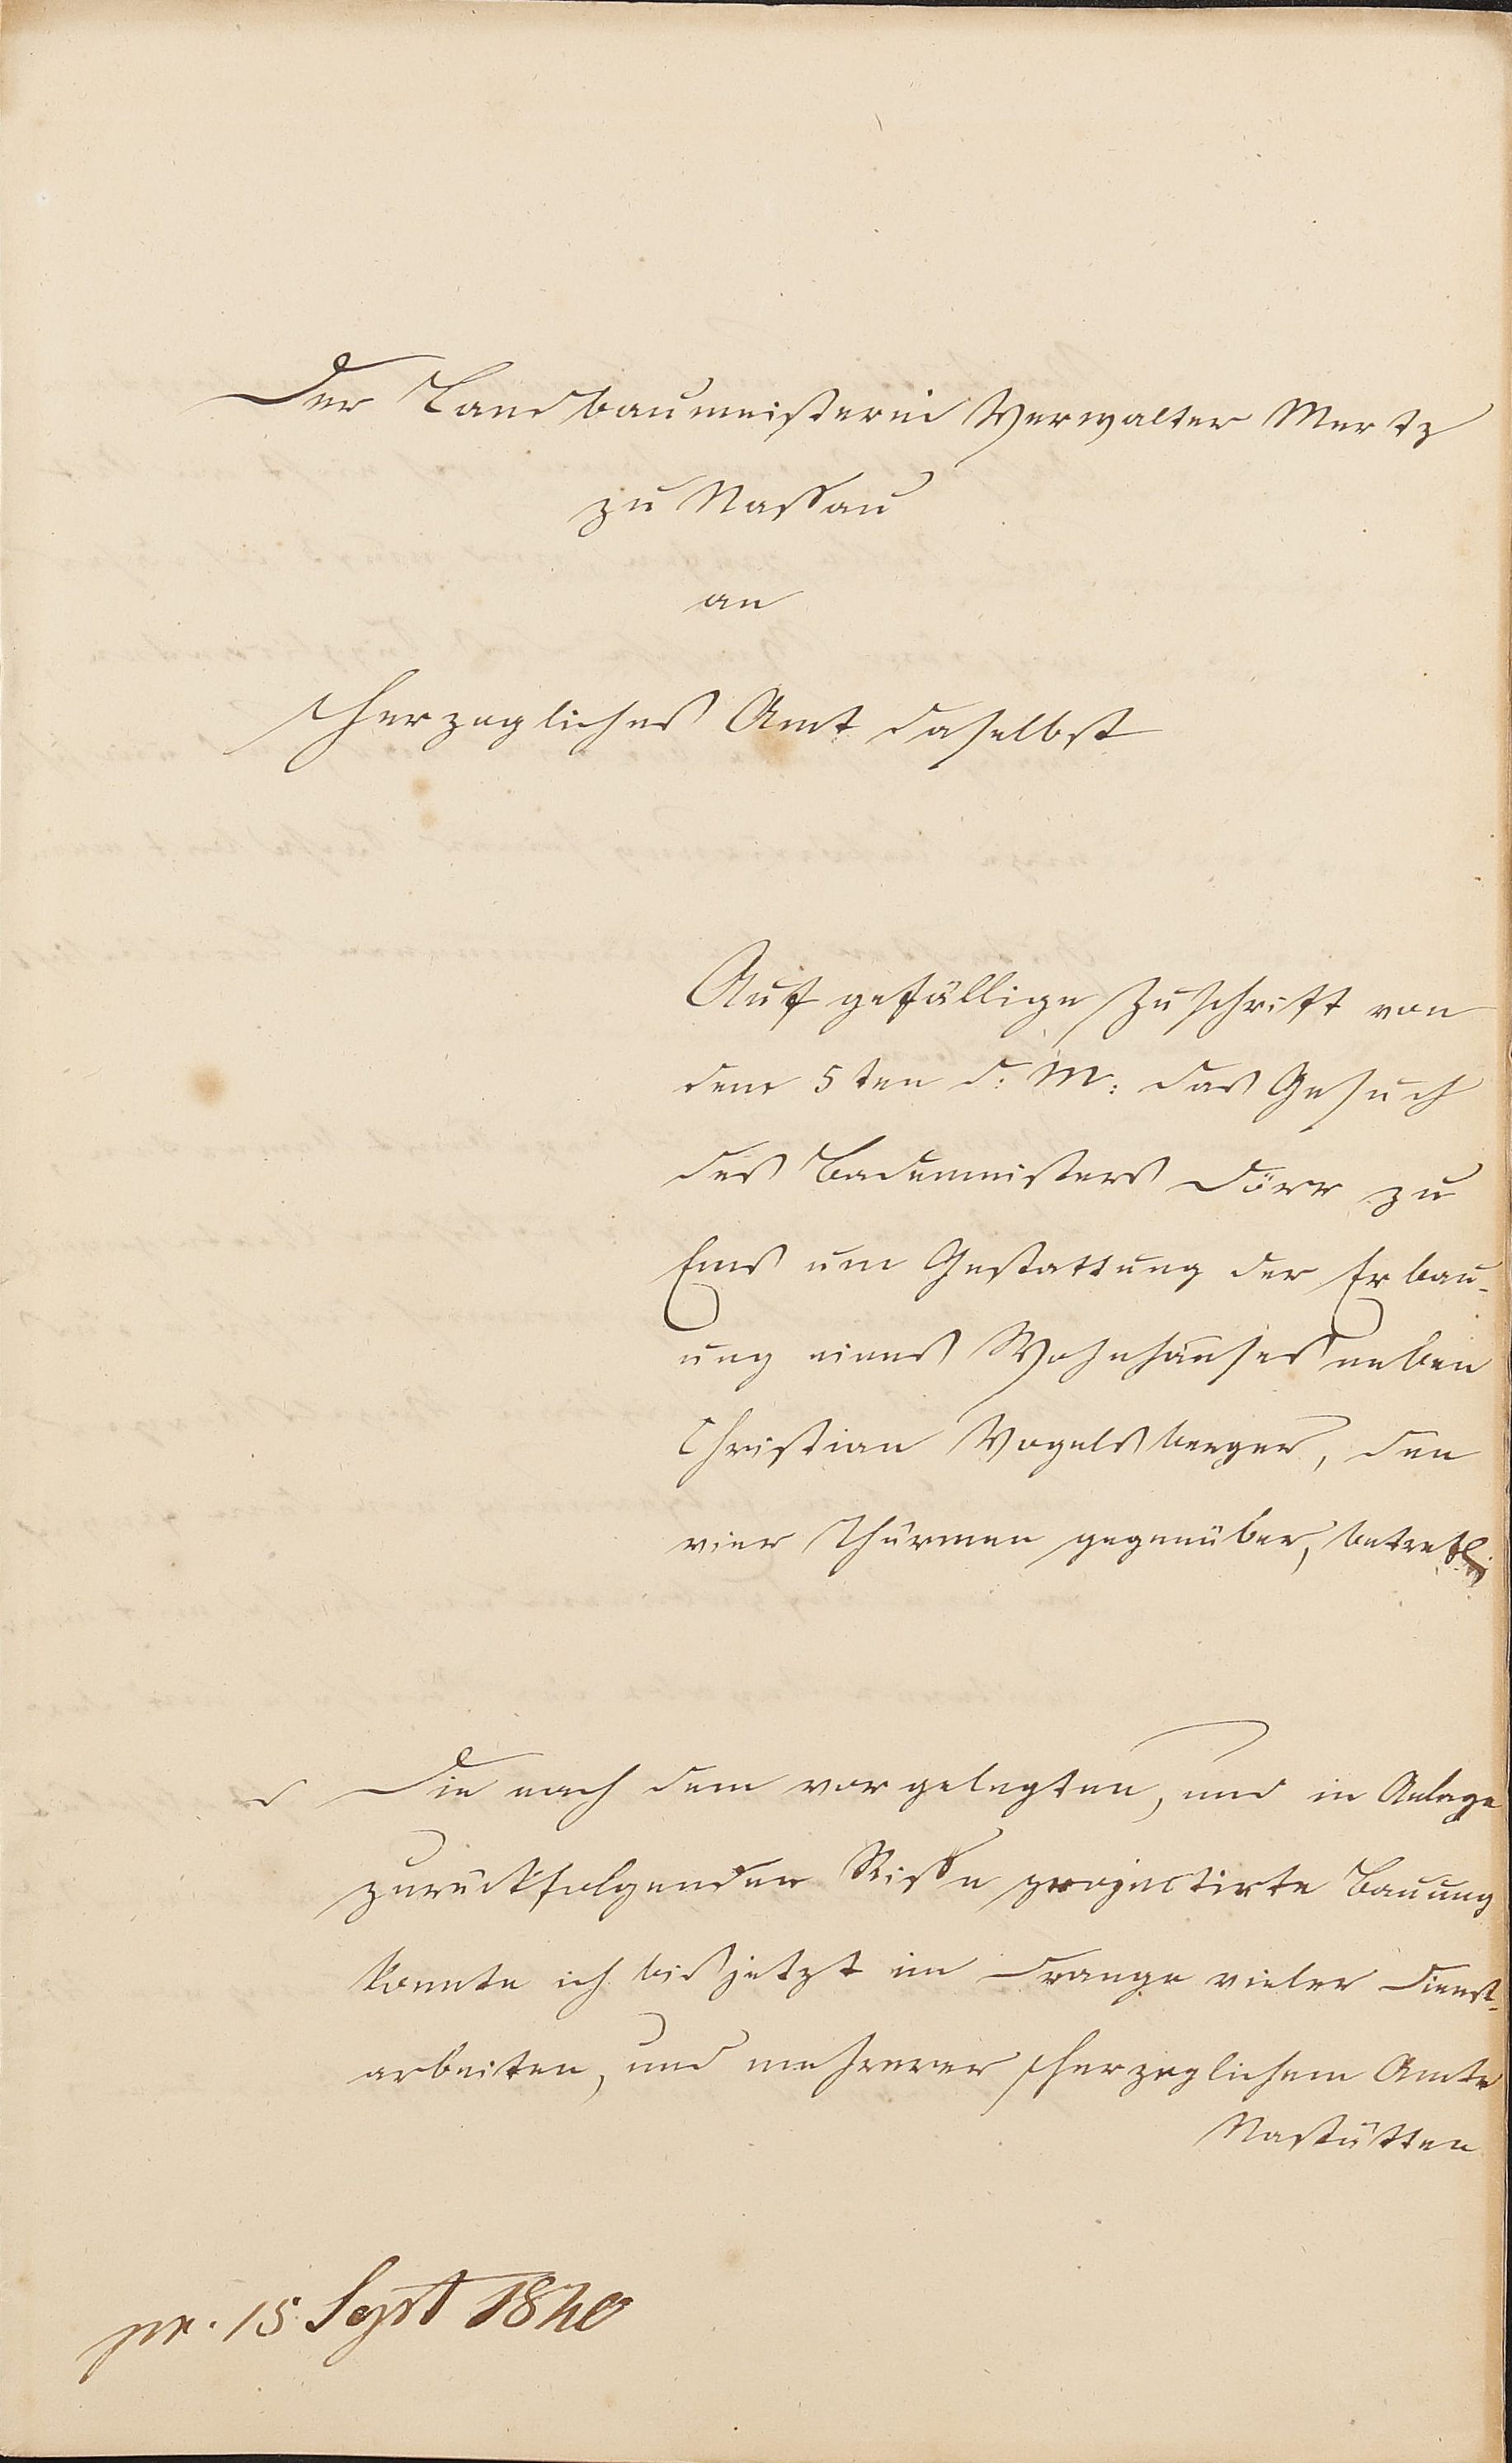 Der Landbaumeisterei Verwalter Mertz
zu Nassau
an
Herzogliches Amt daselbst
Auf gefällige Zuschrift von
dem 5ten d: M: das Gesuch
des Bademeisters Dörr zu
Ems um Gestattung der Erbau-
ung eines Wohnhauses neben
Christian Vogelsberger, den
vier Thürmen gegenüber, betref
Die nach dem vorgelegten, und in Anlage
zurückfolgenden Risse projectirte Bauung
konnte ich bis jetzt im Drange vieler Dienst-
arbeiten, und mehrerer Herzoglichem Amte
Nastätten
pr. 15 Sept 1840